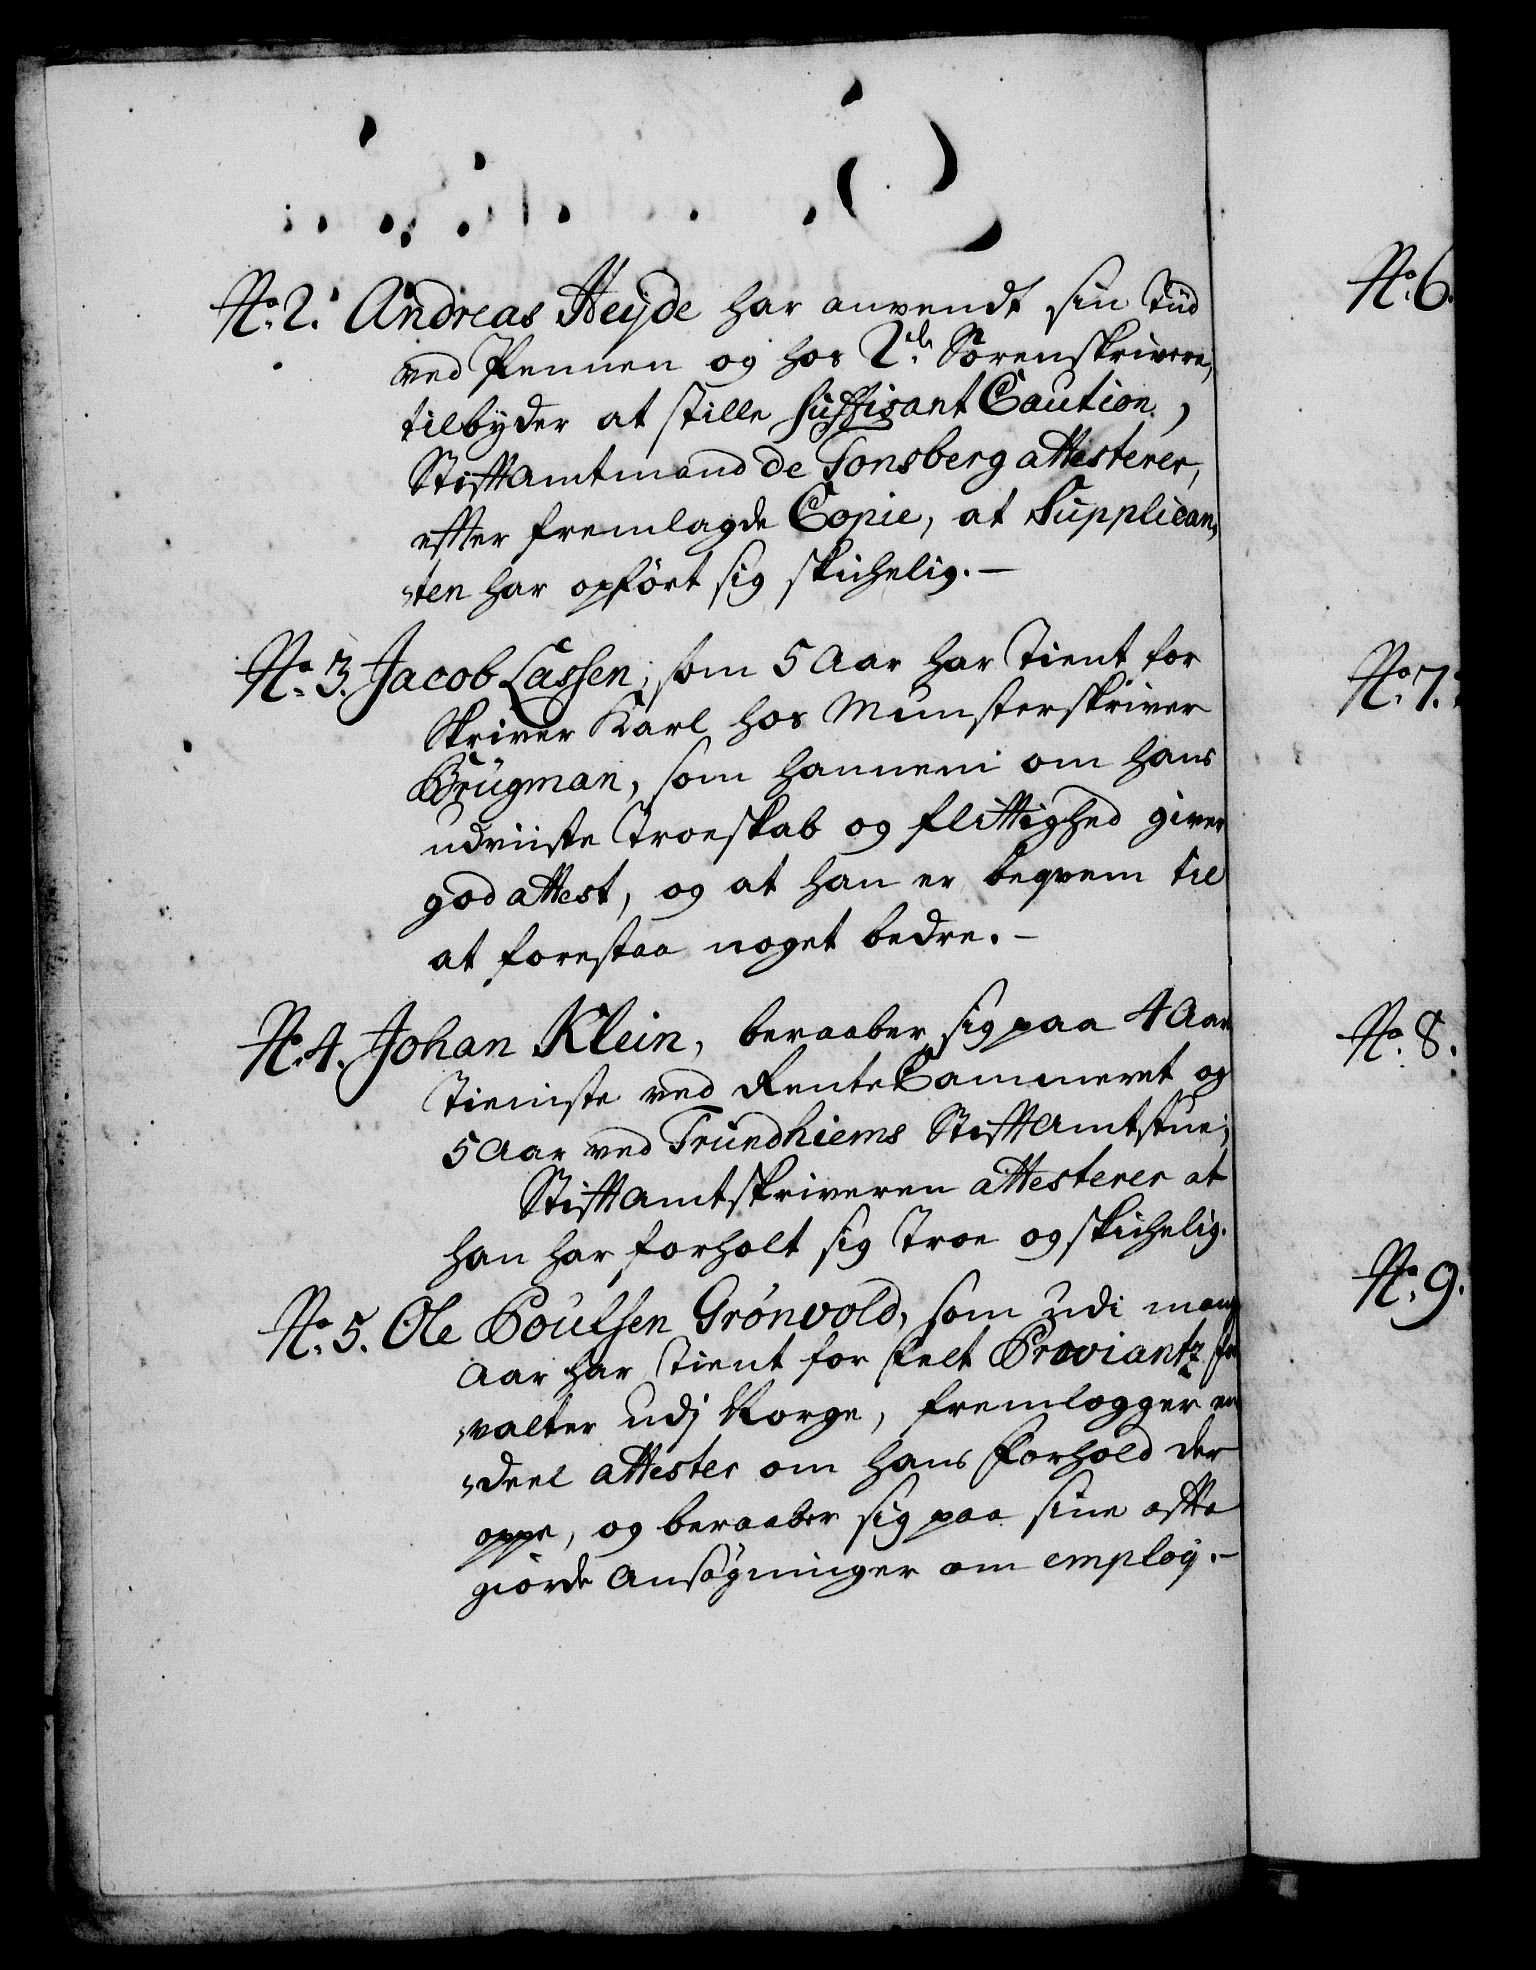 No. 2. Andreas Heyde har anvendt sin Tiid
ved Pennen og hos 2de Sorenskrivere,
tilbyder at stille suffisant Caution,
StiftAmtmand de Tonsberg attesterer,
efter fremlagde Copie, at Supplican-
ten har opført sig skichelig. —
No. 3. Jacob Lassen, som 5 Aar har tient for
Skriver Karl hos Munsterskriver
Brügman, som hannem om hans
udviiste Troeskab og flittighed giver
god attest, og at han er beqvem til
at forestaa noget bedre. —
No. 4. Johan Klein, beraaber sig paa 4 Aar
Tieniste ved RenteCammeret og
5 Aar ved Trundhiems StiftAmtstue;
StiftAmtskriveren attesterer at
han har forholt sig troe og skichelig.
No. 5. Ole Poulsen Grönvold, som udi mang
Aar har tient for Felt Proviantz for
valter udj Norge, fremlægger en
deel attester om hans Forhold der
oppe, og beraaber sig paa sine offte
giorde Ansøgninger om employ. —
No. 6.
No. 7.
No. 8.
No. 9.